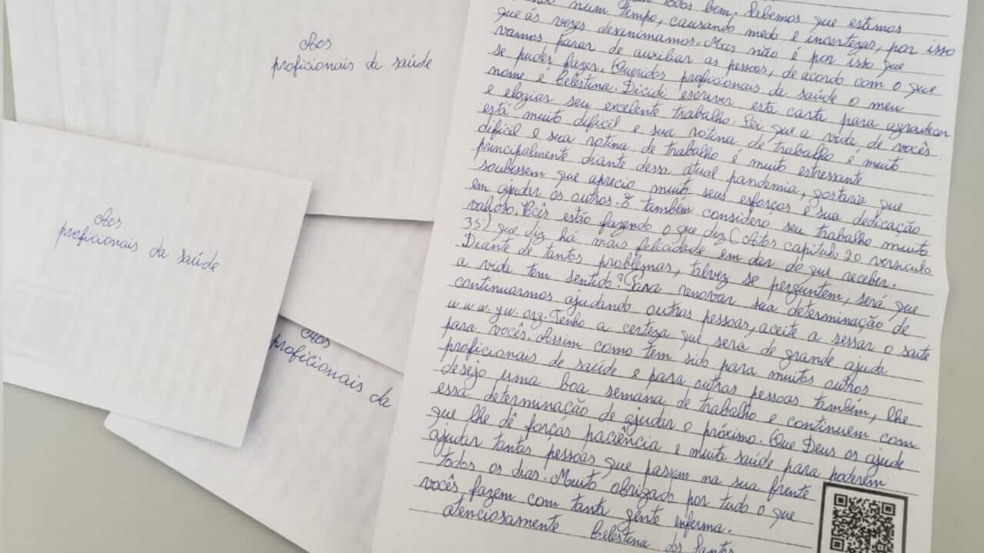 Aos
proficionais da saúde
Aos
proficionais da saúde
Aos
proficionais da
todos bem. Sabemos que estamos
num tempo, causando medo e incertezas, por isso
que ás vezes desanimamos. Mas não é por isso que
vamos parar de auxiliar as pessoas, de acordo com o que
se puder fazer. Queridos profissionais da saúde o meu
nome é Celestina. Dicidi escrever esta carta para agradecer
e elogiar seu excelente trabalho. Sei que a vida de vocês
está muito dificil e sua rotina de trabalho é muito
dificil e sua rotina de trabalho é muito estressante
principalmente diante dessa atual pandemia, gostaria que
soubessem que aprecio muito seus esforços e sua dedicação
em ajudar os outros. E também considero seu trabalho muito
valioso. Vocês estão fazendo o que diz (Atos capítulo 20 versiculo
35) que diz há mais felicidade em dar do que receber.
Diante de tantos problemas, talvez se perguntem, será que
a vida tem sentido? Para renovar sua determinação de
continuarmos ajudando outras pessoas, aceite a sessar o saite
www.jw.org. Tenho a certeza que sera de grande ajuda
para vocês. Assim como tem sido para muitos outros
proficionais de saúde e para outras pessoas também, lhe
desejo uma boa semana de trabalho e continuem com
essa determinação de ajudar o próximo. Que Deus os ajude
que lhe dê forças paciência e muita saúde para poderem
ajudar tantas pessoas que passam na sua frente
todos os dias. Muito obrigado por tudo o que
vocês fazem com tanta gente enferma.
atenciosamente Celestina dos Santos